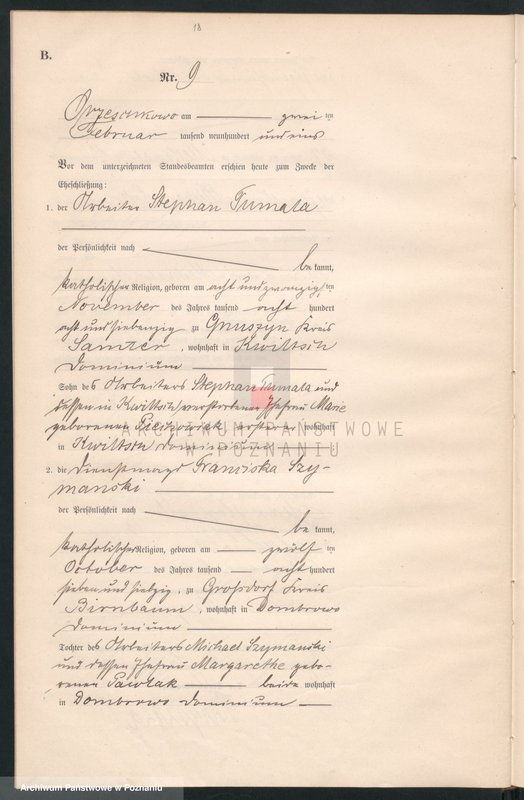 18
B.
Nr. 9
Orzeschkowo am zwei ten
Februar tausend neunhundert und eins
Vor dem unterzeichneten Standesbeamten erschien heute zum Zwecke der
Eheschließung:
1. der Arbeiter Stephan Tumala
der Persönlichkeit nach
be kannt,
katholischer Religion, geboren am acht und zwanzig ten
November des Jahres tausend acht hundert
acht und siebenzig zu Gnuszyn Kreis
Samter, wohnhaft in Kwiltsch
Dominium
Sohn des Arbeiters Stephan Tumala und
dessen in Kwiltsch verstorbener Ehefrau Marie
geborenen ersterer wohnhaft
in Kwiltsch Dominium
2. die Dienstmagd Franziska Szy-
manski
der Persönlichkeit nach
be kannt,
katholischer Religion, geboren am zwölf ten
October des Jahres tausend acht hundert
sieben und siebzig zu Großdorf Kreis
Birnbaum, wohnhaft in Dombrowo
Dominium
Tochter des Arbeiters Michael Szymanski
und dessen Ehefrau Margarethe gebo-
renen Pawlak beide wohnhaft
in Dombrowo Dominium
ARCHIWUM PAŃSTWOWE
W POZNANIU
Archiwum Państwowe w Poznaniu